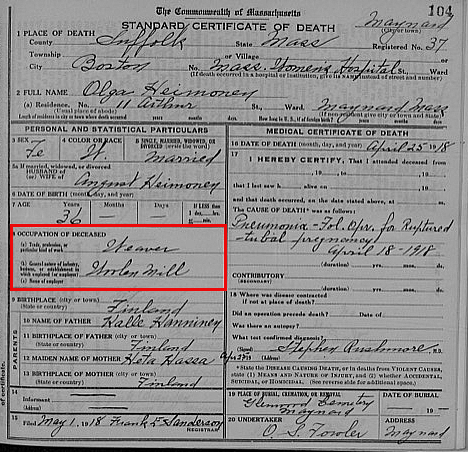 The Commonwealth of Massachusetts
104
STANDARD CERTIFICATE OF DEATH
Maynard
(City or town)
1 PLACE OF DEATH
County Suffolk State Mass Registered No. 37
Township or Village
City Boston No. Mass. Womens Hospital St., Ward
(If death occurred in a hospital or institution, give its NAME instead of street and number)
2 FULL NAME Olga Heimoney
(a) Residence. No. 11 Arthur St., Ward. Maynard Mass
(Usual place of abode) (If non-resident give city or town and State)
Length of residence in city or town where death occurred
PERSONAL AND STATISTICAL PARTICULARS
3 SEX Fe
4 COLOR OR RACE W.
5 SINGLE, MARRIED, WIDOWED, OR DIVORCED (write the word) Married
5a If married, widowed, or divorced
HUSBAND of
(or) WIFE of August Heimoney
6 DATE OF BIRTH (month, day, and year)
7 AGE Years Months Days
36
If LESS than
1 day, hrs.
or min.
8 OCCUPATION OF DECEASED
(a) Trade, profession, or
particular kind of work Weaver
(b) General nature of industry,
business, or establishment in
which employed (or employer) Woolen Mill
(c) Name of employer
9 BIRTHPLACE (city or town)
(State or country) Finland
10 NAME OF FATHER Kalle Hanniney
11 BIRTHPLACE OF FATHER (city or town)
(State or country) Finland
12 MAIDEN NAME OF MOTHER
13 BIRTHPLACE OF MOTHER (city or town)
(State or country) Finland
PARENTS
14
Informant
(Address)
15
Filed May 1, 1918 Frank E Sanderson
REGISTRAR
MEDICAL CERTIFICATE OF DEATH
16 DATE OF DEATH (month, day, and year) April 25 1918
17
I HEREBY CERTIFY, That I attended deceased from
, 19 , to , 19
that I last saw h alive on , 19
and that death occurred, on the date stated above, at m.
The CAUSE OF DEATH* was as follows:
Pneumonia - Fol. Opr. for Ruptured
tubal pregnancy
April 18 - 1918
(duration) yrs. mos. ds.
CONTRIBUTORY
(SECONDARY)
(duration) yrs. mos. ds.
18 Where was disease contracted
if not at place of death?
Did an operation precede death? Date of
Was there an autopsy?
What test confirmed diagnosis?
(Signed) Stephen Rushmore, M.D.
*State the DISEASE CAUSING DEATH, or in deaths from VIOLENT CAUSES, state (1) MEANS AND NATURE OF INJURY, and (2) whether ACCIDENTAL, SUICIDAL, or HOMICIDAL. (See reverse side for additional space.)
19 PLACE OF BURIAL, CREMATION, OR REMOVAL DATE OF BURIAL
Glenwood Cemetery
Maynard 19
20 UNDERTAKER ADDRESS
O. S. Fowler Maynard
of certificate.